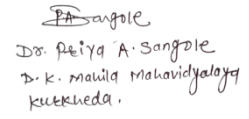 PASangole
Dr. Priya A. Sangole
D. K. Mahila Mahavidyalaya
Kurkheda.